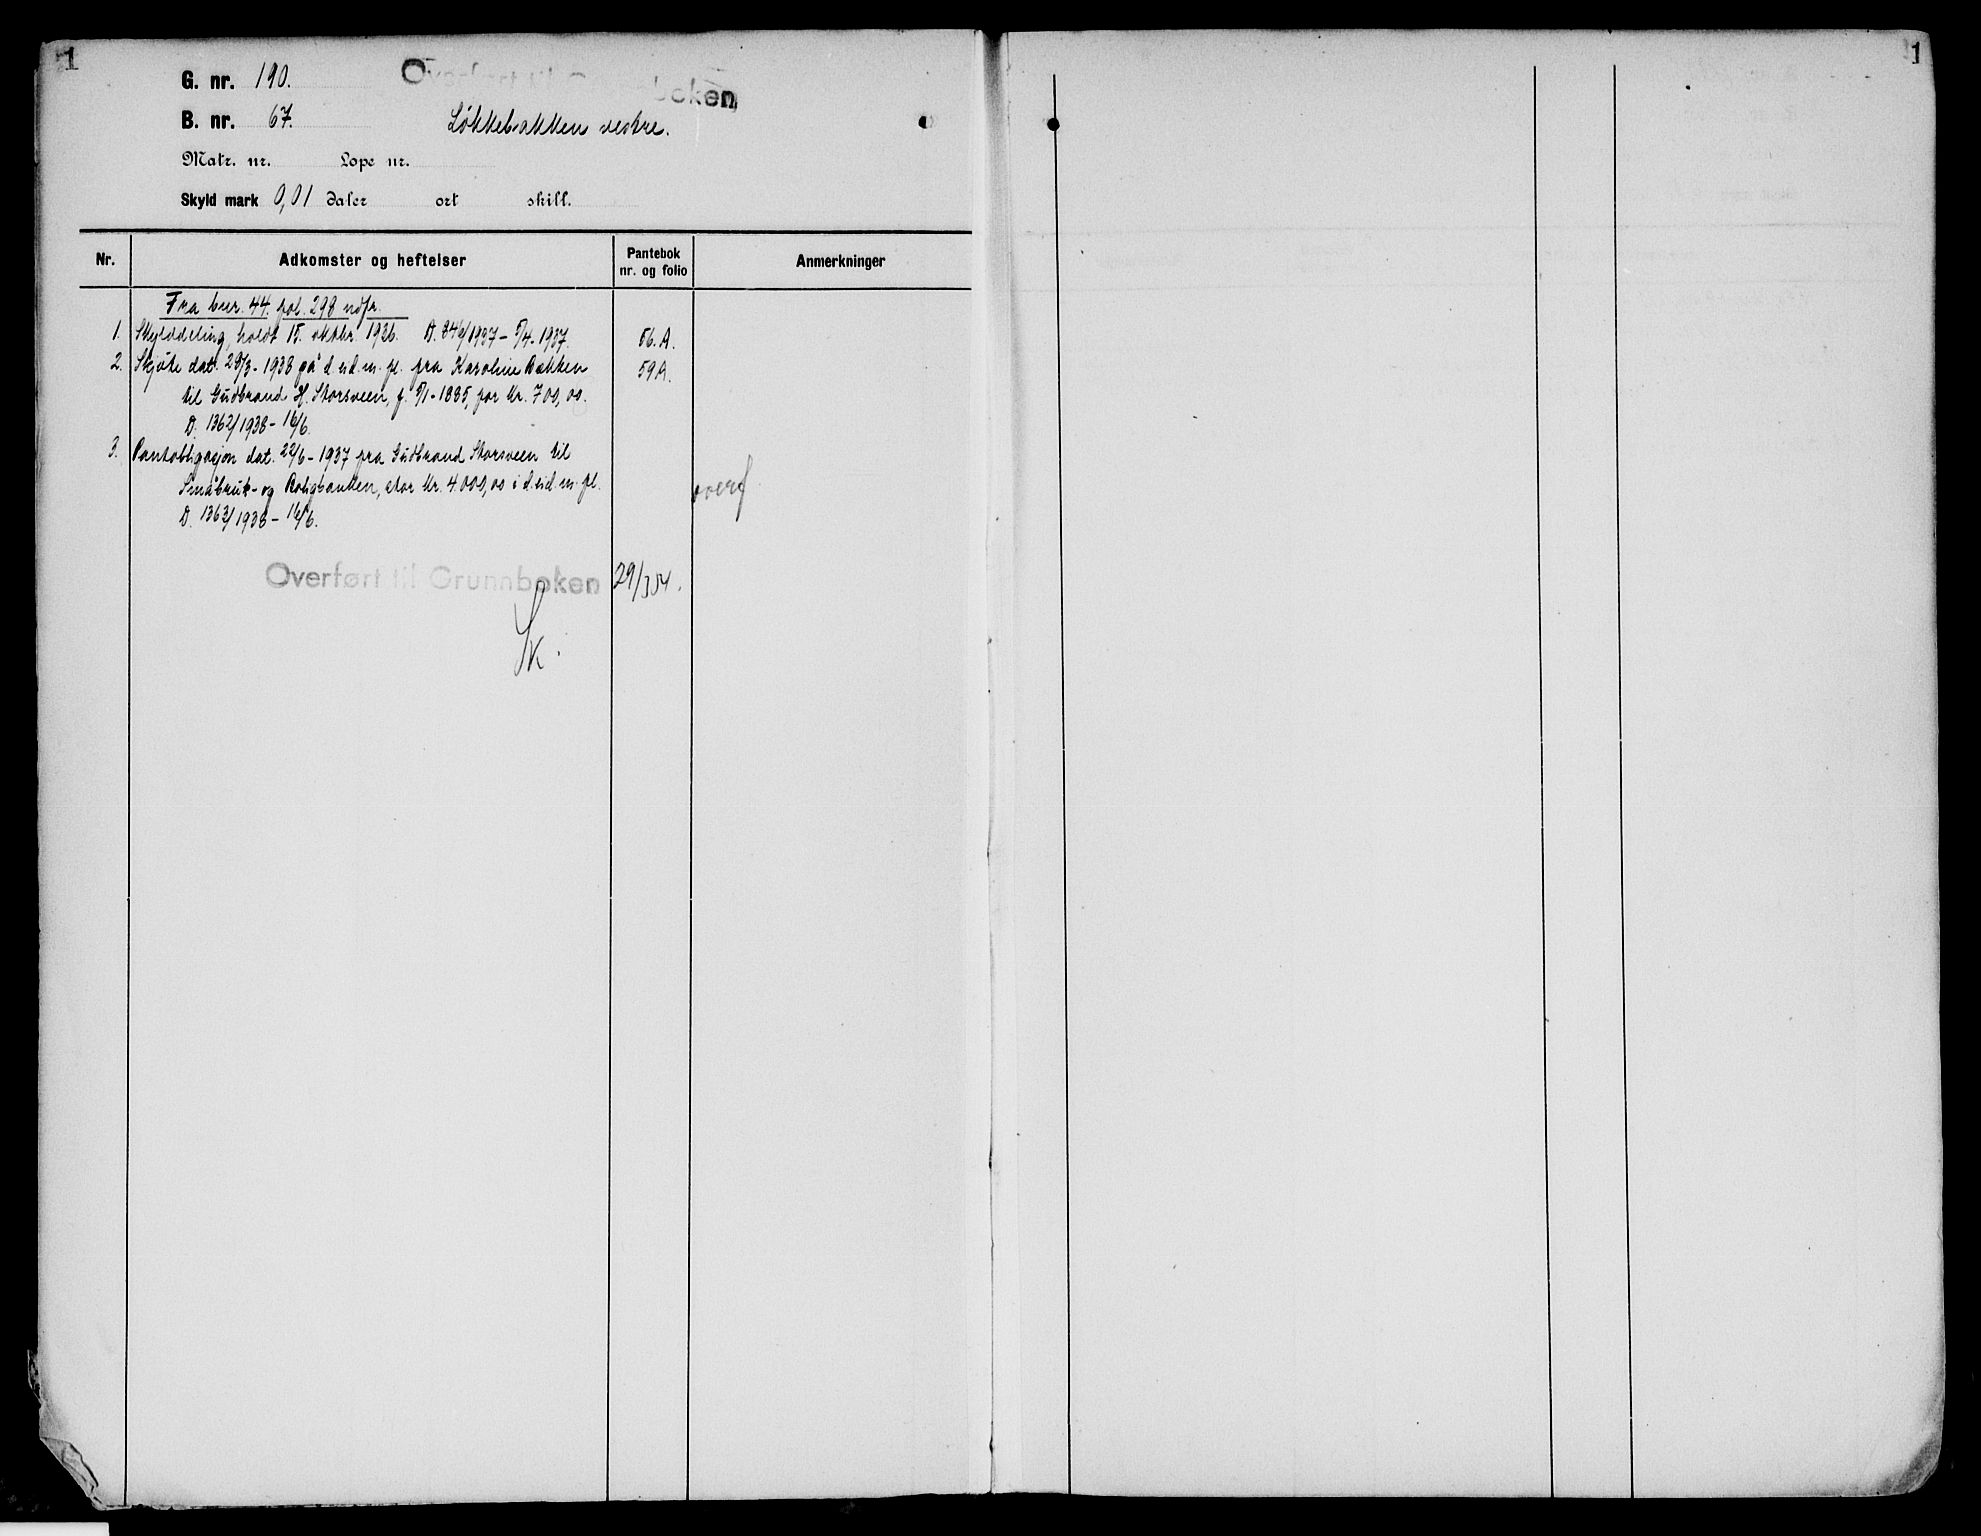 1
1
Overført til Grunnboken
G. nr. 190.
B. nr. 67. Løkkebakken vestre.
Matr. nr. Løpe nr.
Skyld mark 0,01 daler ort skill.
Nr. Adkomster og heftelser Pantebok nr. og folio Anmerkninger
Fra bnr. 44. fol. 298 udfr.
1. Skylddeling, holdt 15. oktbr. 1936. D. 846/1937 – 5/4-1937. 56.A.
2. Skjøte dat. 29/3-1938 på d. eid. m. fl. fra Karoline Bakken 59A.
til Gudbrand H. Storsveen, f. 5/1-1885, for kr. 700,00.
D. 1362/1938 – 16/6.
3. Pantobligasjon dat. 22/6-1937 fra Gudbrand Storsveen til
Småbruk- og Boligbanken, stor kr. 4000,00 i d. eid. m. fl. overf
D. 1363/1938 – 16/6.
Overført til Grunnboken 29/354.
Sk.